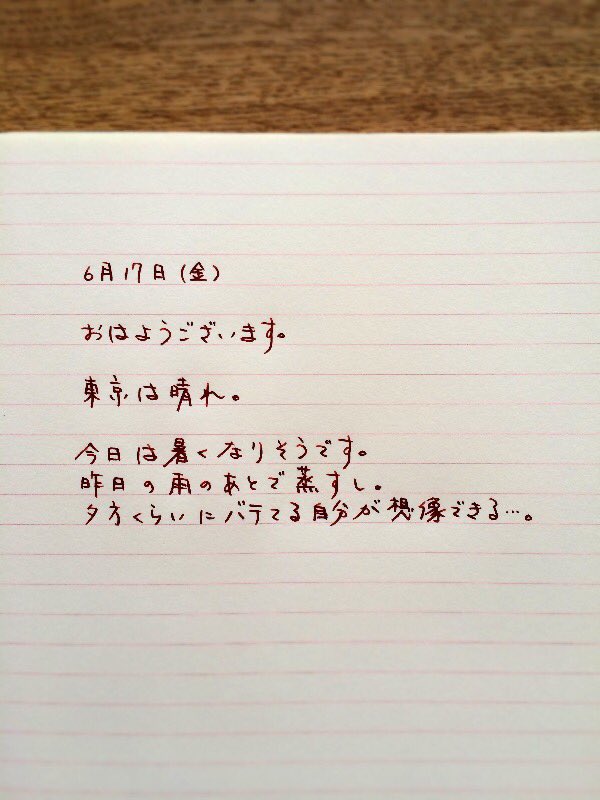 6月17日(金)
おはようございます。
東京は晴れ。
今日は暑くなりそうです。
昨日の雨のあとで蒸すし。
夕方くらいにバテてる自分が想像できる…。